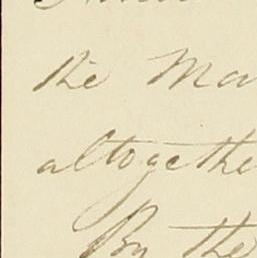 the Mo
altogethe
By the